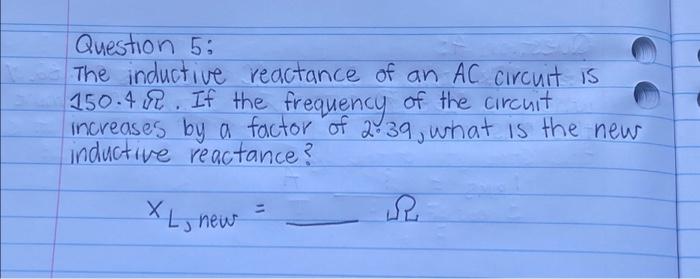 Question 5:
The inductive reactance of an AC circuit is
150.4 Ω. If the frequency of the circuit
increases by a factor of 2.39, what is the new
inductive reactance?
X L, new = ___ Ω